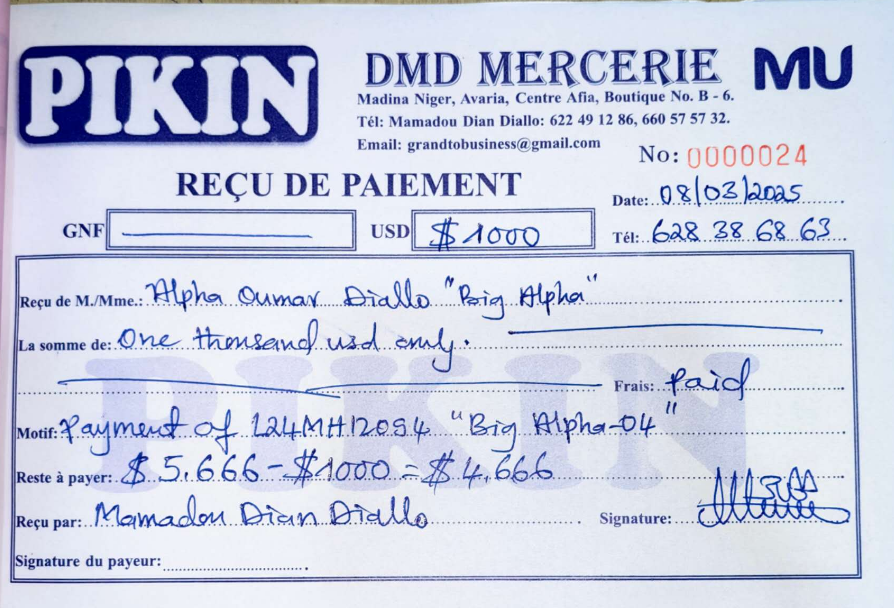 PIKIN
DMD MERCERIE
MU
Madina Niger, Avaria, Centre Afia, Boutique No. B - 6.
Tél: Mamadou Dian Diallo: 622 49 12 86, 660 57 57 32.
Email: grandtobusiness@gmail.com
No: 0000024
REÇU DE PAIEMENT
Date: 08/03/2025
GNF
USD $ 1000
Tél: 628 38 68 63
Reçu de M./Mme.: Alpha Oumar Diallo "Big Alpha"
La somme de: One thousand usd only.
Frais: Paid
PIKIN
Motif: Payment of L24MH12094 "Big Alpha-04"
Reste à payer: $ 5.666 - $1000 = $ 4,666
Reçu par: Mamadou Dian Diallo
Signature:
Signature du payeur: